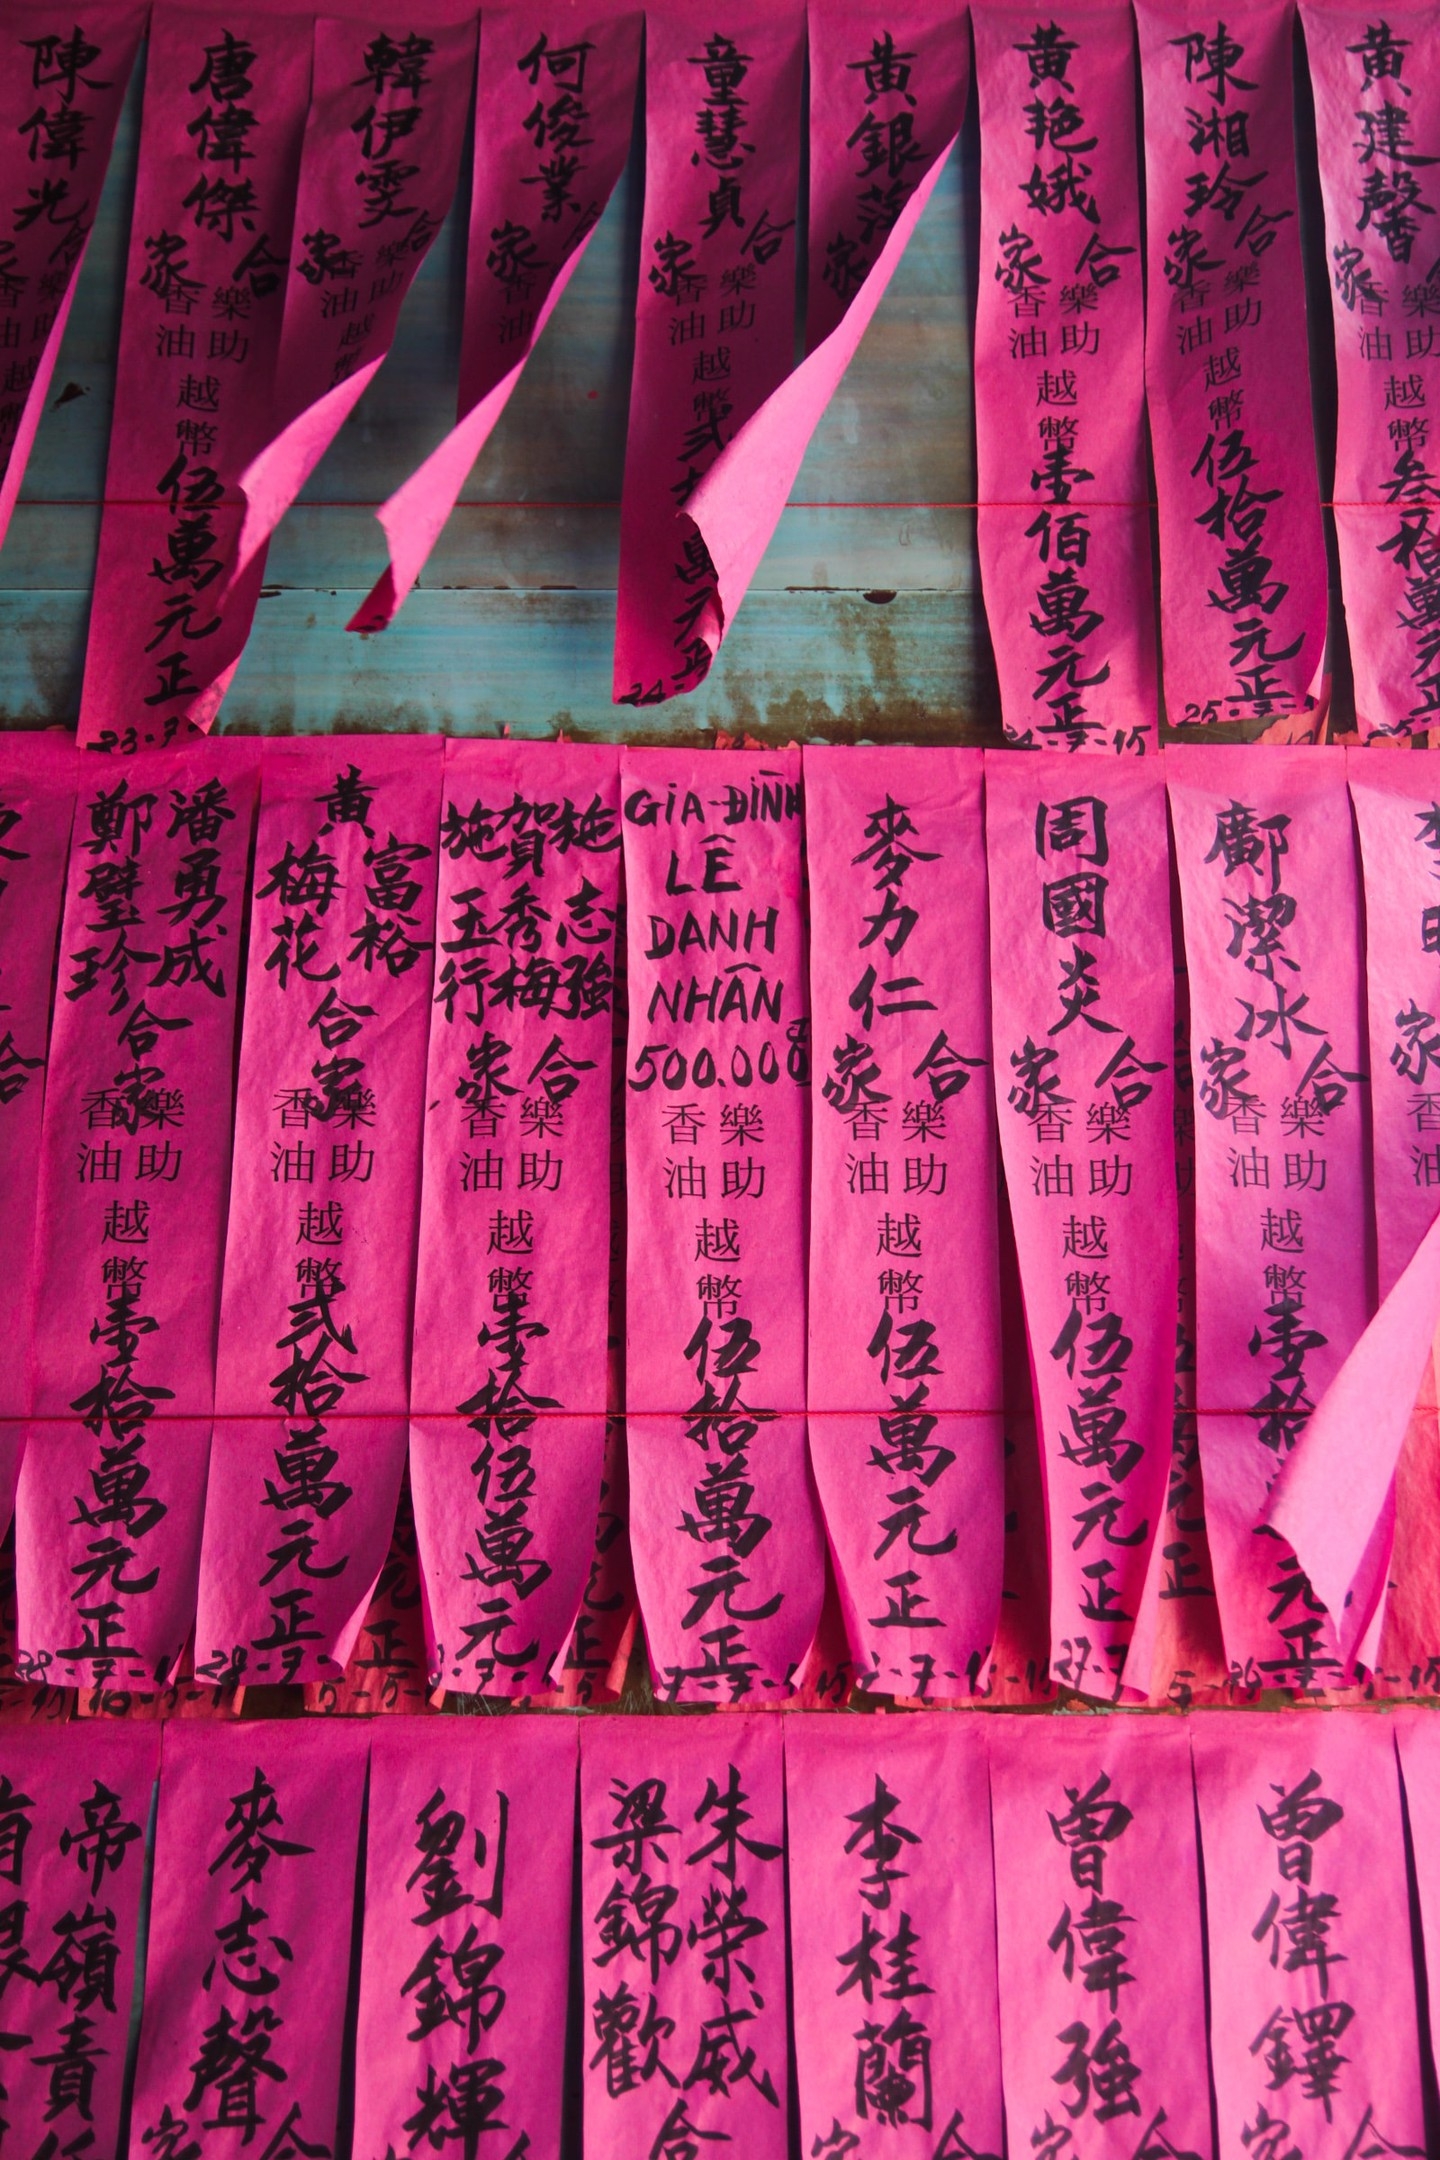 陳偉光
唐偉傑
合家
樂助
香油
越幣
伍萬元正
23-7-
韓伊雯
合家
樂助
香油
越幣
何俊業
家
香油
童慧貞
合家
樂助
香油
越幣
萬元正
24-
黃銀
家
黃艳娥
合家
樂助
香油
越幣
壹佰萬元正
-7-15
陳湘玲
合家
樂助
香油
越幣
伍拾萬元正
25-7-
黃建馨
家
樂助
香油
越幣
叁拾萬元正
潘勇成
鄭璧珍
合家
樂助
香油
越幣
壹拾萬元正
28-7-1
黃
富裕
梅花
合家
樂助
香油
越幣
弍拾萬元正
28-7-
施志強
賀秀梅
施玉行
合家
樂助
香油
越幣
壹拾伍萬元
GIA-ĐÌNH
LÊ
DANH
NHÂN
500.000đ
樂助
香油
越幣
伍拾萬元正
麥力仁
合家
樂助
香油
越幣
伍萬元正
周國炎
合家
樂助
香油
越幣
伍萬元正
27-7
鄺潔冰
合家
樂助
香油
越幣
壹拾
元正
26-
家
香油
帝嶺責任
麥志聲
合家
劉錦輝
朱榮威
梁錦歡
合
李桂蘭
合家
曾偉強
合家
曾偉鐸
合家